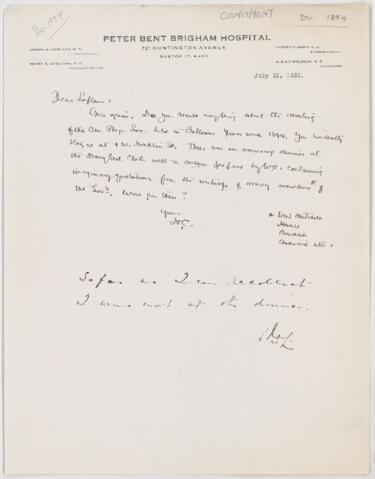 Dec. 1894
CUS417/90.47
Dec. 1894
PETER BENT BRIGHAM HOSPITAL
721 HUNTINGTON AVENUE
BOSTON 17, MASS.
July 12, 1922.
Dear Lafleur:
Once again. Do you recall anything about the meeting
of the Am Phys. Soc. held in Baltimore Xmas week 1894. You evidently
stayed at 1 W. Franklin St. There was an amusing dinner at
the Maryland Club with a menu prepared by containing
imaginary quotations from the writings of many members of
the Socy. Were you there?
Yours
HC
Weir Mitchell
Howell
Bowditch
Chittenden etc.
So far as I can recollect
I was not at the dinner.